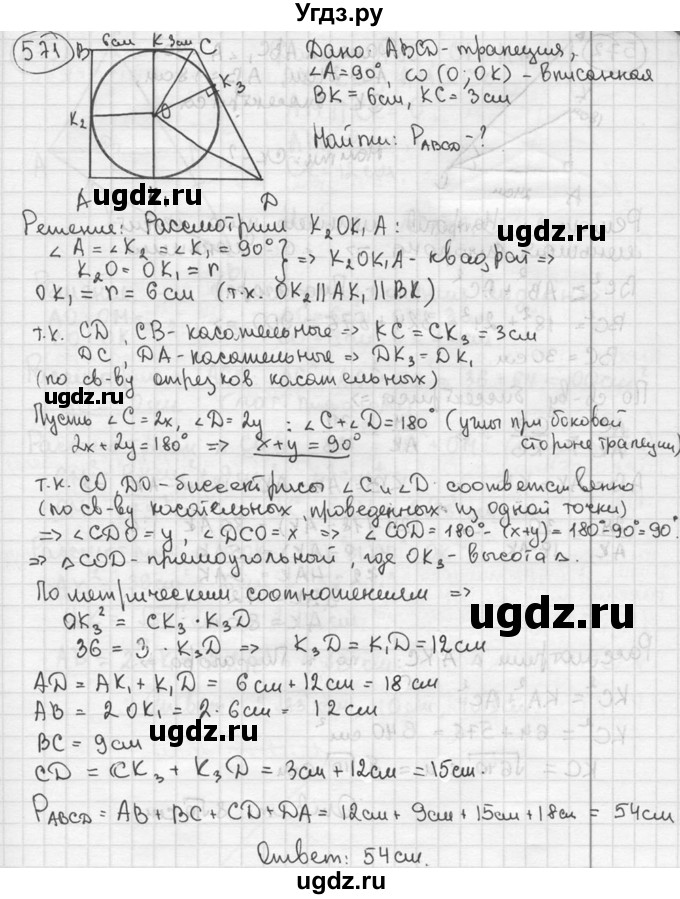 Угдз.ру
571
B 6см K 3см C
K₃
K₂
O
A
D
Дано: ABCD - трапеция,
∠A = 90°, ω (O; OK) - вписанная
BK = 6см, KC = 3см
Найти: P_ABCD - ?
ugdz.ru ugdz.ru
Решение: Рассмотрим K₂OK₁A:
∠A = ∠K₂ = ∠K₁ = 90° } => K₂OK₁A - квадрат =>
K₂O = OK₁ = r
OK₁ = r = 6см (т.к. OK₂ ∥ AK₁ ∥ BK)
т.к. CD, CB - касательные => KC = CK₃ = 3см
DC, DA - касательные => DK₃ = DK₁
(по св-ву отрезков касательных)
ugdz.ru
Пусть ∠C = 2x, ∠D = 2y : ∠C + ∠D = 180° (углы при боковой
2x + 2y = 180° => x + y = 90° стороне трапеции)
т.к. CO, DO - биссектрисы ∠C и ∠D соответственно
(по св-ву касательных, проведенных из одной точки)
=> ∠CDO = y, ∠DCO = x => ∠COD = 180° - (x+y) = 180° - 90° = 90°.
=> △COD - прямоугольный, где OK₃ - высота △.
По метрическим соотношением =>
OK₃² = CK₃ · K₃D
36 = 3 · K₃D => K₃D = K₁D = 12см
ugdz.ru
AD = AK₁ + K₁D = 6см + 12см = 18см
AB = 2 OK₁ = 2 · 6см = 12см
ugdz.ru
BC = 9см
CD = CK₃ + K₃D = 3см + 12см = 15см.
P_ABCD = AB + BC + CD + DA = 12см + 9см + 15см + 18см = 54см
Ответ: 54см.
ugdz.ru